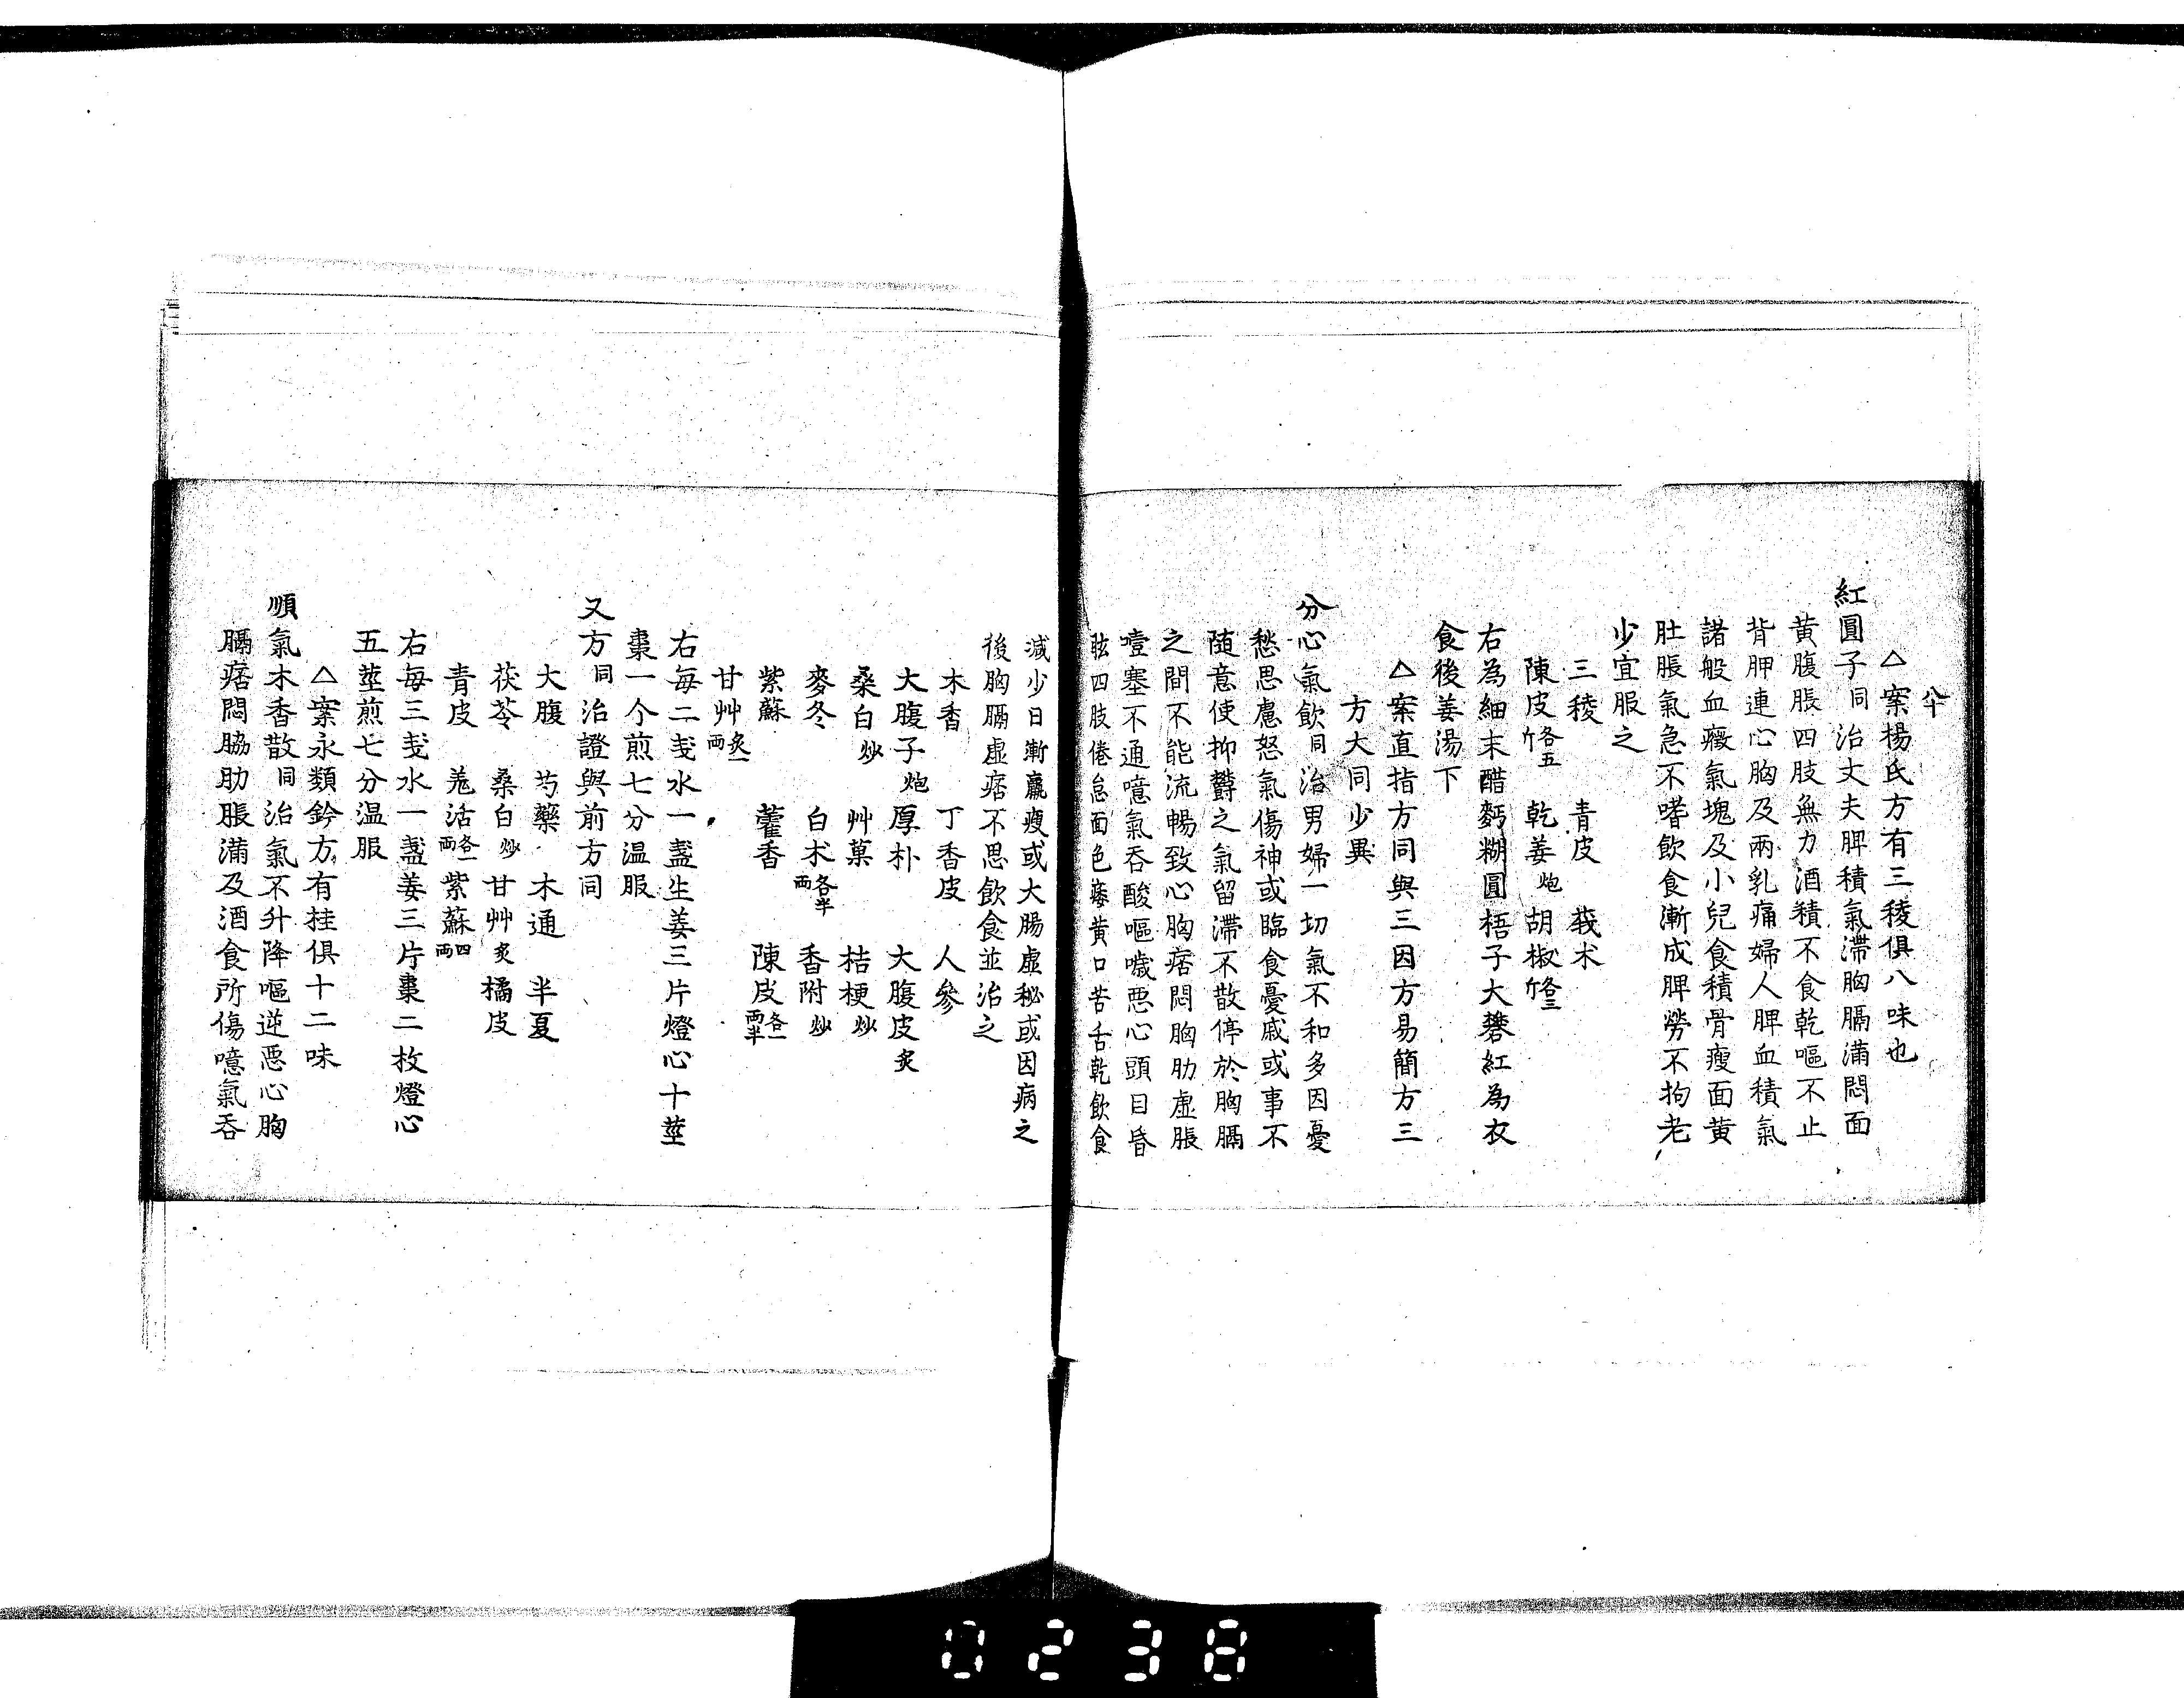 八十
△案楊氏方有三稜俱八味也
紅圓子同治丈夫脾積氣滯胸膈滿悶面
黄腹脹四肢無力酒積不食乾嘔不止
背胛連心胸及兩乳痛婦人脾血積氣
諸般血癥氣塊及小兒食積骨瘦面黄
肚脹氣急不嗜飲食漸成脾勞不拘老
少宜服之
三稜 青皮 莪朮
陳皮各五斤 乾姜炮 胡椒各三斤
右為細末醋麪糊圓梧子大礬紅為衣
食後姜湯下
△案直指方同與三因方易簡方三
方大同少異
分心氣飲同治男婦一切氣不和多因憂
愁思慮怒氣傷神或臨食憂戚或事不
随意使抑欝之氣留滯不散停於胸膈
之間不能流暢致心胸痞悶胸肋虚脹
噎塞不通噫氣吞酸嘔噦惡心頭目昏
眩四肢倦怠面色痿黄口苦舌乾飲食
減少日漸羸瘦或大腸虚秘或因病之
後胸膈虚痞不思飲食並治之
木香 丁香皮 人參
大腹子炮 厚朴 大腹皮炙
桑白炒 艸菓 桔梗炒
麥冬 白朮各半兩 香附炒
紫蘇 藿香 陳皮各一兩半
甘艸炙一兩
右毎二戔水一盞生姜三片燈心十莖
棗一个煎七分温服
又方同治證與前方同
大腹 芍藥 木通 半夏
茯苓 桑白炒 甘艸炙 橘皮
青皮 羌活各一兩 紫蘇四兩
右毎三戔水一盞姜三片棗二枚燈心
五莖煎七分温服
△案永類鈐方有桂俱十二味
順氣木香散同治氣不升降嘔逆惡心胸
膈痞悶脇肋脹滿及酒食所傷噫氣吞
0238